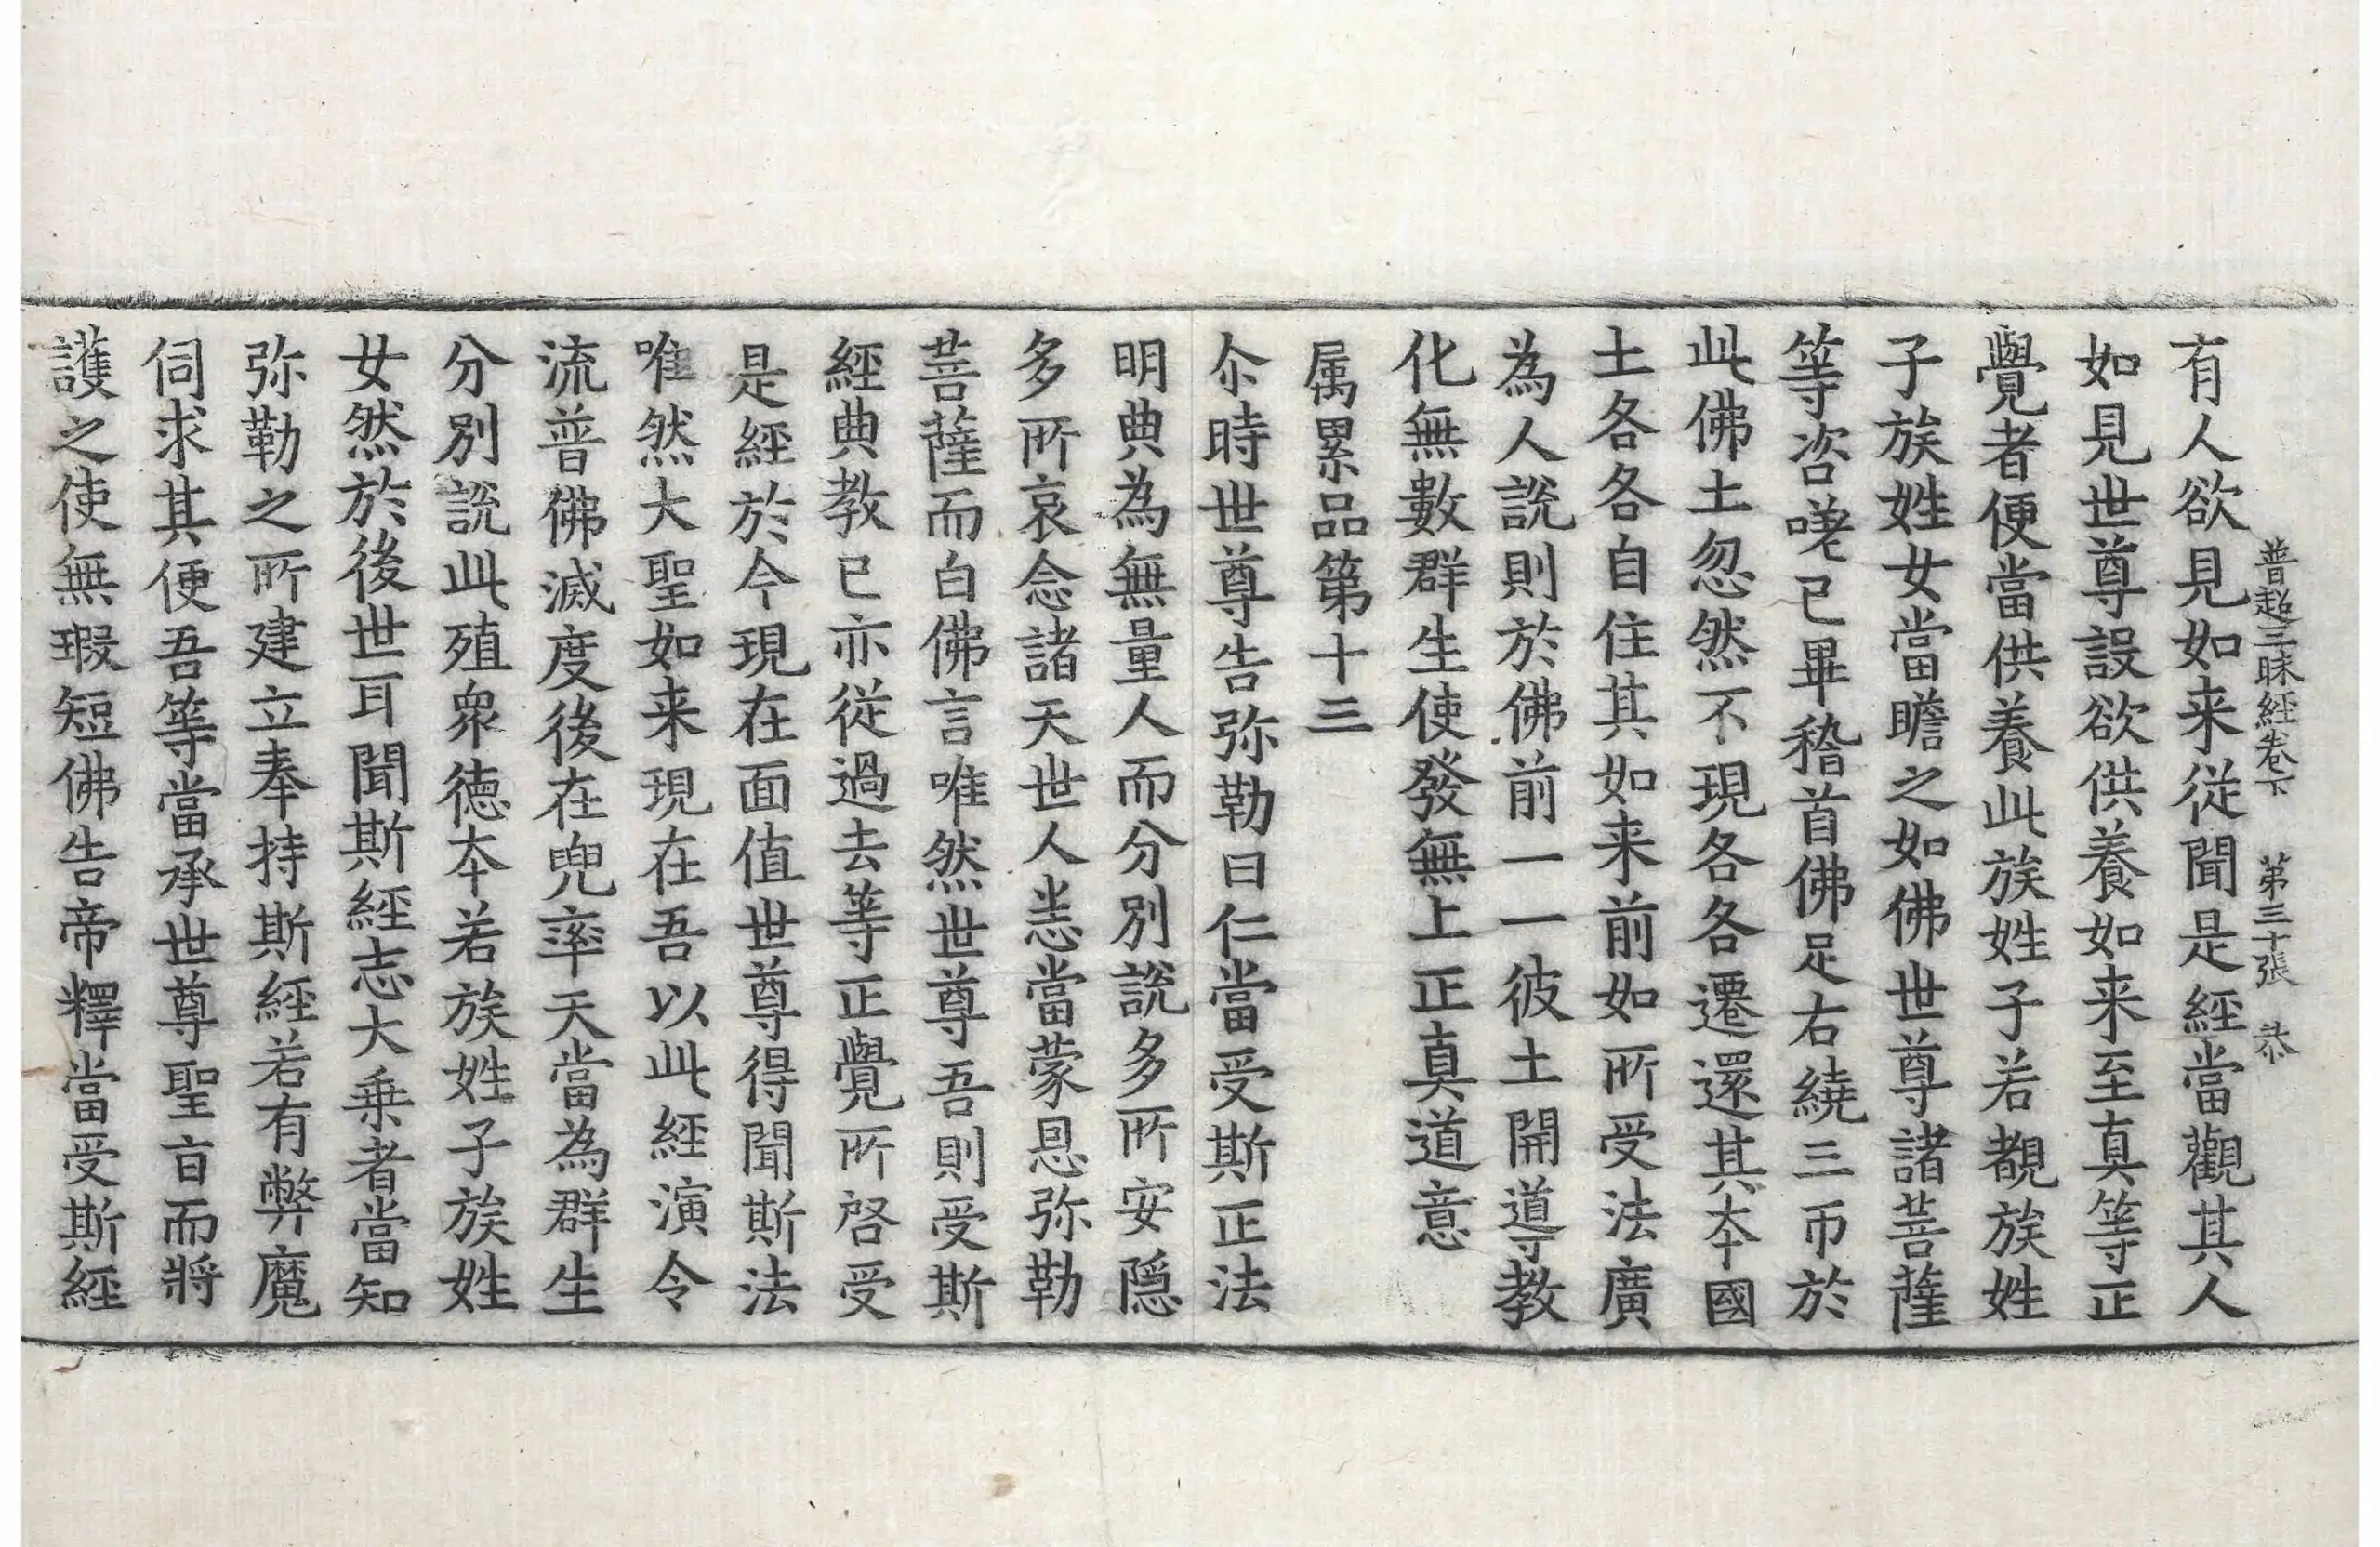 普超三昧經卷下　第三十張　恭
有人欲見如来從聞是經當觀其人
如見世尊設欲供養如来至真等正
覺者便當供養此族姓子若覩族姓
子族姓女當瞻之如佛世尊諸菩薩
等咨嗟已畢稽首佛足右繞三帀於
此佛土忽然不現各各遷還其夲國
土各各自住其如来前如所受法廣
為人說則於佛前一一彼土開導教
化無數群生使發無上正真道意
属累品第十三
尒時世尊告弥勒曰仁當受斯正法
明典為無量人而分別說多所安隠
多所哀念諸天世人恙當蒙恩弥勒
菩薩而白佛言唯然世尊吾則受斯
經典教已亦從過去等正覺所啓受
是經於今現在面值世尊得聞斯法
唯然大聖如来現在吾以此經演令
流普佛滅度後在兜率天當為群生
分別說此殖衆德夲若族姓子族姓
女然於後世耳聞斯經志大乗者當知
弥勒之所建立奉持斯經若有弊魔
伺求其便吾等當承世尊聖㫖而將
護之使無瑕短佛告帝釋當受斯經